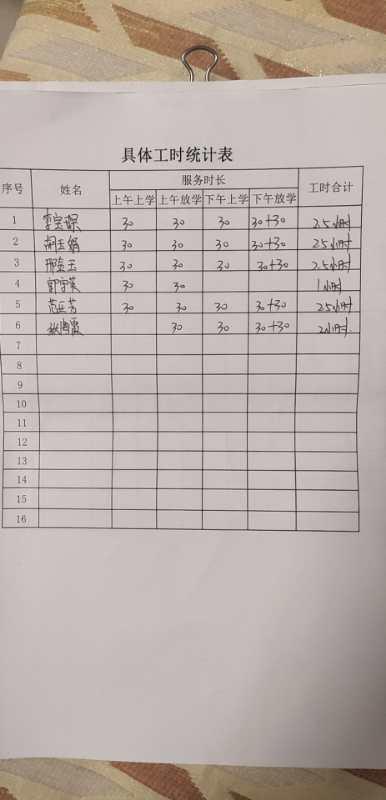 具体工时统计表
序号 姓名 服务时长 工时合计
上午上学 上午放学 下午上学 下午放学
1 30 30 30 30+30 2.5小时
2 30 30 30 30+30 2.5小时
3 30 30 30 30+30 2.5小时
4 30 30 1小时
5 30 30 30 30+30 2.5小时
6 30 30 30+30 2小时.
7
8
9
10
11
12
13
14
15
16